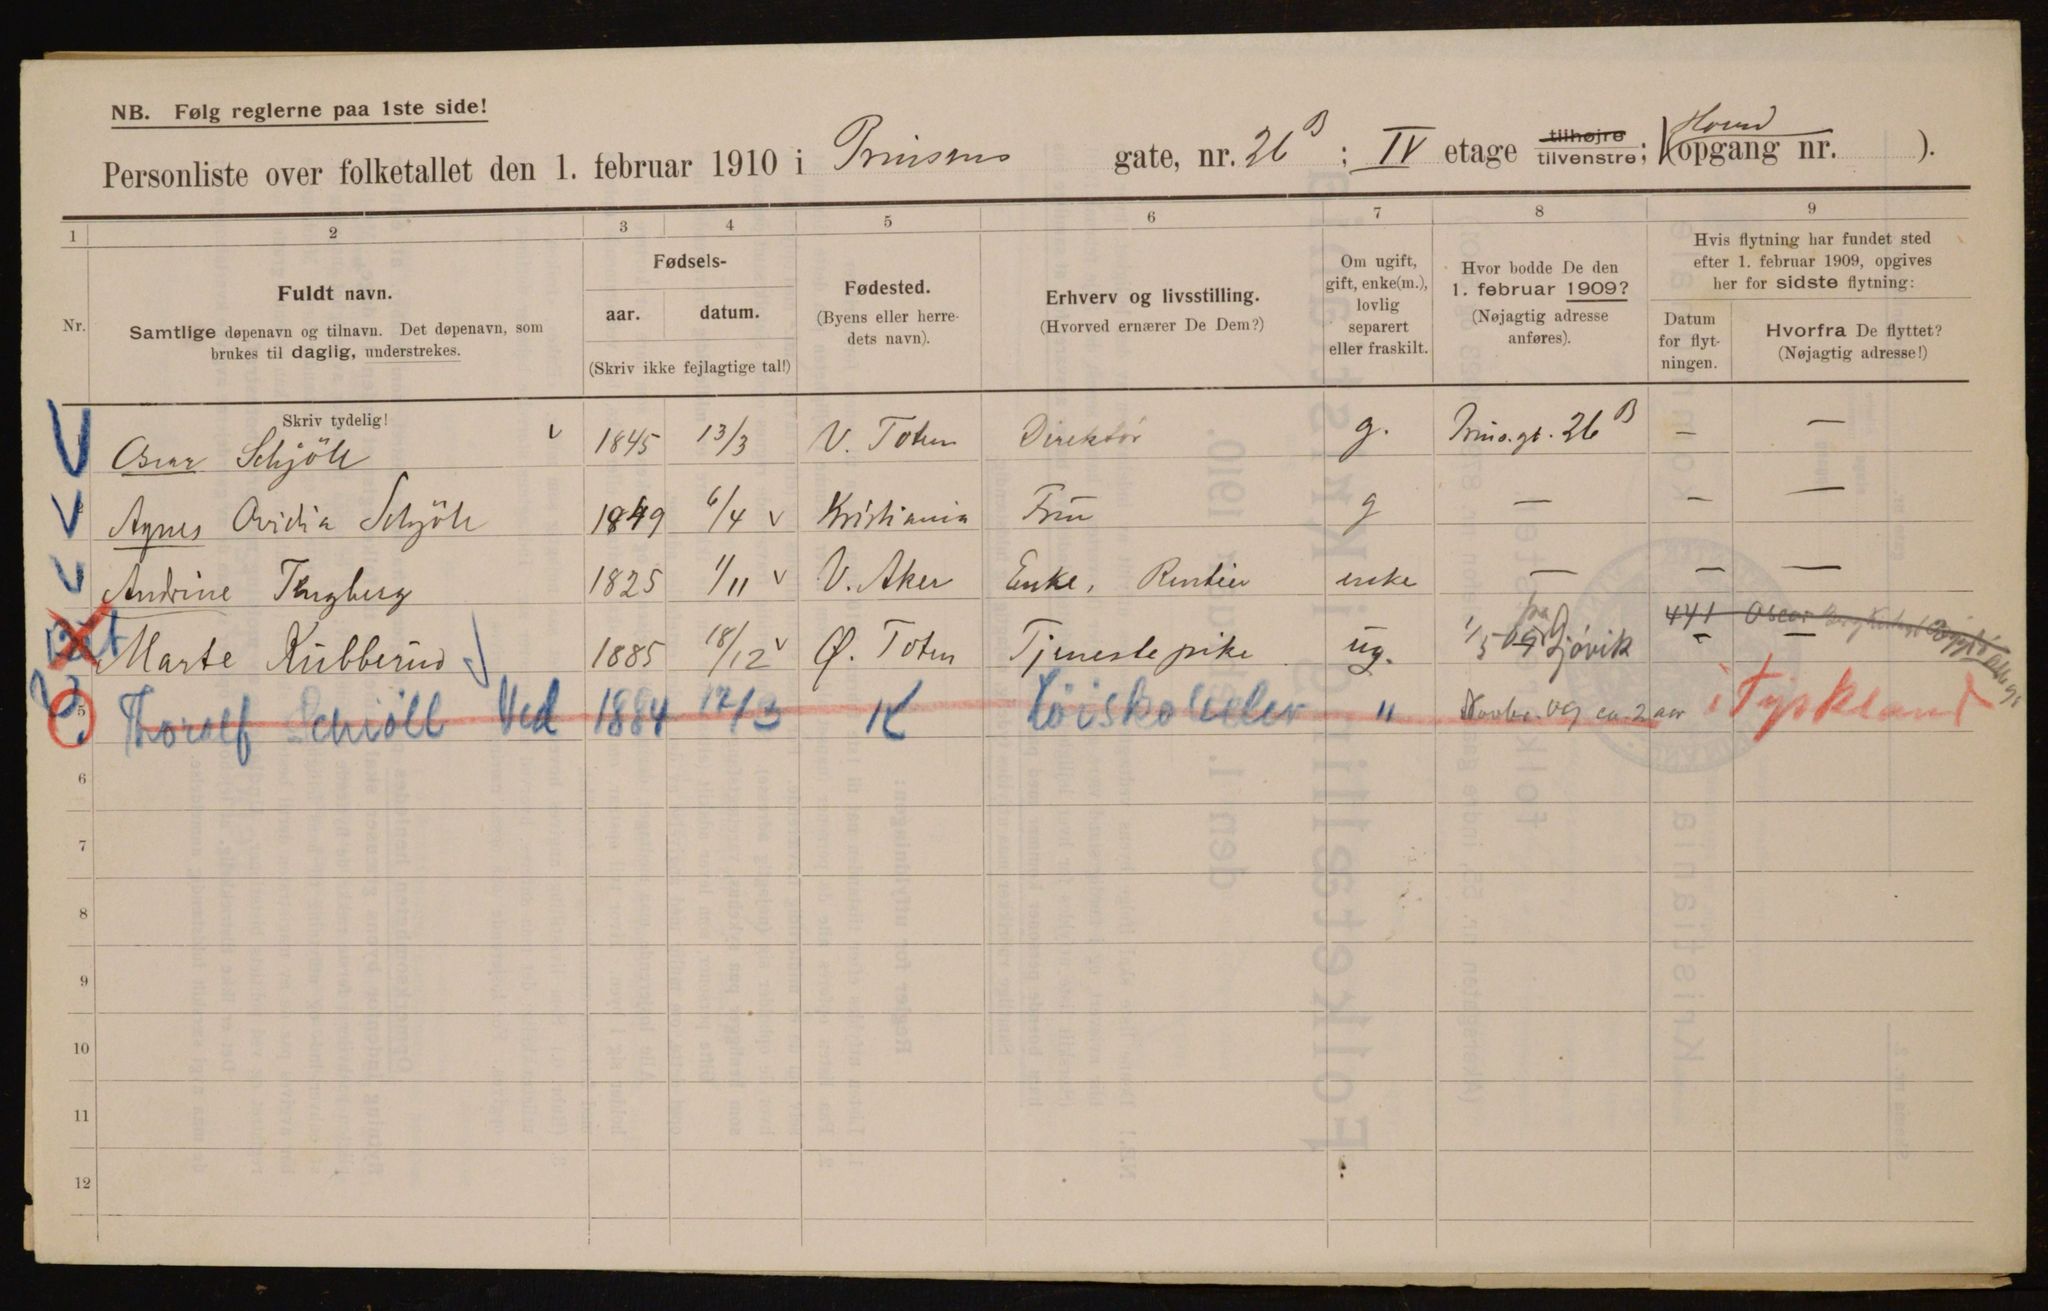 NB. Følg reglerne paa 1ste side!
Personliste over folketallet den 1. februar 1910 i Prinsens gate, nr. 26 B ; IV etage tilhøjre tilvenstre; (Hoved opgang nr. ).
1 2 3 4 5 6 7 8 9
Nr.
Fuldt navn.
Samtlige døpenavn og tilnavn. Det døpenavn, som
brukes til daglig, understrekes.
Fødsels-
aar. datum.
(Skriv ikke fejlagtige tal!)
Fødested.
(Byens eller herre-
dets navn).
Erhverv og livsstilling.
(Hvorved ernærer De Dem?)
Om ugift,
gift, enke(m.),
lovlig
separert
eller fraskilt.
Hvor bodde De den
1. februar 1909?
(Nøjagtig adresse
anføres).
Hvis flytning har fundet sted
efter 1. februar 1909, opgives
her for sidste flytning:
Datum
for flyt-
ningen.
Hvorfra De flyttet?
(Nøjagtig adresse!)
Skriv tydelig!
Oscar Schjöll 1845 13/3 V. Toten Direktör g. Prins.gt. 26 B — —
Agnes Ovidia Schjöll 1849 6/4 v Kristiania Frue g — — —
Andrine Engberg 1825 1/11 v V. Aker Enke, Rentier enke — — —
Marte Kubberud 1885 18/12 v Ø. Toten Tjenestepike ug. 1/5 09 fra Gjövik 441 Oscar
5 Thoralf Schiöll Ved 1884 17/3 K Höiskoleelev " Novbr. 09 ca. 2 aar i Tyskland
6
7
8
9
10
11
12